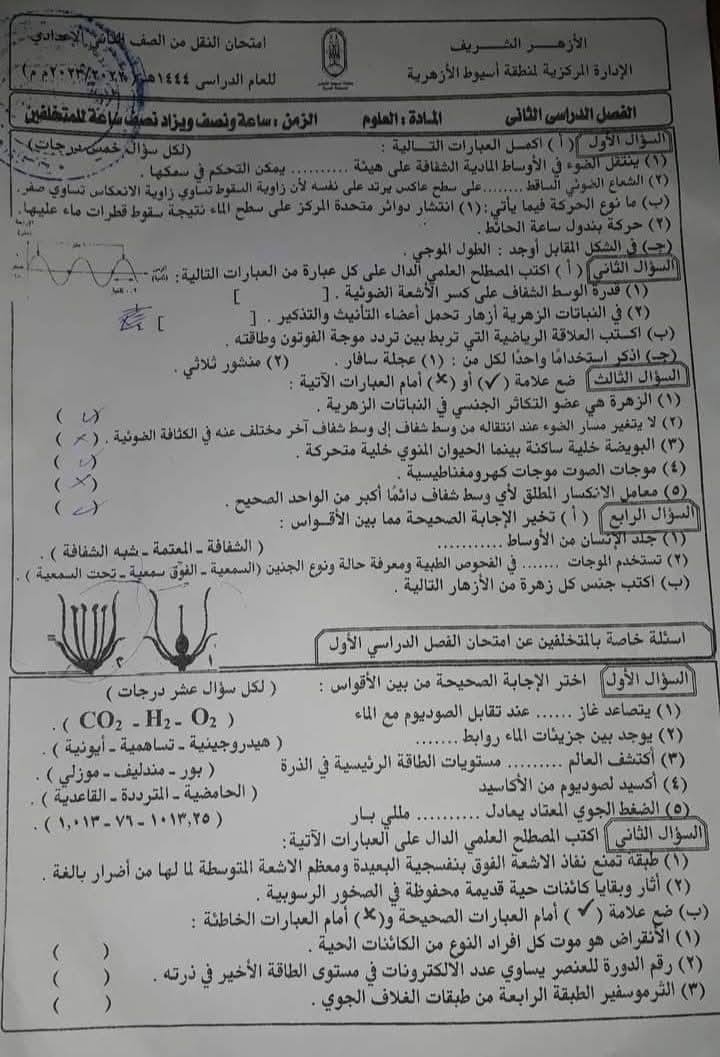 الأزهر الشريف
الإدارة المركزية لمنطقة أسيوط الأزهرية
امتحان النقل من الصف الثاني الإعدادي
للعام الدراسى ١٤٤٤هـ
الفصل الدراسى الثانى المادة : العلوم الزمن : ساعة ونصف ويزاد نصف ساعة للمتخلفين
السؤال الأول ( أ ) اكمل العبارات التالية : (لكل سؤال خمس درجات)
(١) ينتقل الضوء في الأوساط المادية الشفافة على هيئة .......... يمكن التحكم في سمكها .
(٢) الشعاع الضوئي الساقط ........على سطح عاكس يرتد على نفسه لأن زاوية السقوط تساوي زاوية الانعكاس تساوي صفر.
(ب) ما نوع الحركة فيما يأتي: (١) انتشار دوائر متحدة المركز على سطح الماء نتيجة سقوط قطرات ماء عليها.
(٢) حركة بندول ساعة الحائط .
(جـ) في الشكل المقابل أوجد : الطول الموجي .
السؤال الثاني ( أ ) اكتب المصطلح العلمي الدال على كل عبارة من العبارات التالية:
(١) قدرة الوسط الشفاف على كسر الأشعة الضوئية . [ ]
(٢) في النباتات الزهرية أزهار تحمل أعضاء التأنيث والتذكير . [ ]
(ب) اكتب العلاقة الرياضية التي تربط بين تردد موجة الفوتون وطاقته .
(جـ) اذكر استخدامًا واحدًا لكل من : (١) عجلة سافار . (٢) منشور ثلاثي .
السؤال الثالث ضع علامة (✓) أو (✗) أمام العبارات الآتية :
(١) الزهرة هي عضو التكاثر الجنسي في النباتات الزهرية . (✓)
(٢) لا يتغير مسار الضوء عند انتقاله من وسط شفاف إلى وسط شفاف آخر مختلف عنه في الكثافة الضوئية . (✗)
(٣) البويضة خلية ساكنة بينما الحيوان المنوي خلية متحركة . (✓)
(٤) موجات الصوت موجات كهرومغناطيسية . (✗)
(٥) معامل الانكسار المطلق لأي وسط شفاف دائمًا أكبر من الواحد الصحيح . (✓)
السؤال الرابع ( أ ) تخير الإجابة الصحيحة مما بين الأقواس :
(١) جلد الإنسان من الأوساط .......... ( الشفافة ـ المعتمة ـ شبه الشفافة ) .
(٢) تستخدم الموجات ....... في الفحوص الطبية ومعرفة حالة ونوع الجنين (السمعية ـ الفوق سمعية ـ تحت السمعية ) .
(ب) اكتب جنس كل زهرة من الأزهار التالية .
١ ٢
اسئلة خاصة بالمتخلفين عن امتحان الفصل الدراسي الأول
السؤال الأول اختر الإجابة الصحيحة من بين الأقواس : ( لكل سؤال عشر درجات )
(١) يتصاعد غاز ...... عند تقابل الصوديوم مع الماء ( CO2 - H2 - O2 ) .
(٢) يوجد بين جزيئات الماء روابط ....... ( هيدروجينية ـ تساهمية ـ أيونية ) .
(٣) أكتشف العالم ......... مستويات الطاقة الرئيسية في الذرة ( بور ـ مندليف ـ موزلي ) .
(٤) أكسيد لصوديوم من الأكاسيد ( الحامضية ـ المترددة ـ القاعدية ) .
(٥) الضغط الجوي المعتاد يعادل .......... مللي بـار ( ١٠١٣,٢٥ - ٧٦ - ١,٠١٣ ) .
السؤال الثاني اكتب المصطلح العلمي الدال على العبارات الآتية:
(١) طبقة تمنع نفاذ الاشعة الفوق بنفسجية البعيدة ومعظم الاشعة المتوسطة لما لها من أضرار بالغة .
(٢) أثار وبقايا كائنات حية قديمة محفوظة في الصخور الرسوبية .
(ب) ضع علامة (✓) أمام العبارات الصحيحة و(✗) أمام العبارات الخاطئة :
(١) الأنقراض هو موت كل افراد النوع من الكائنات الحية . ( )
(٢) رقم الدورة للعنصر يساوي عدد الالكترونات في مستوى الطاقة الأخير في ذرته . ( )
(٣) الثرموسفير الطبقة الرابعة من طبقات الغلاف الجوي . ( )